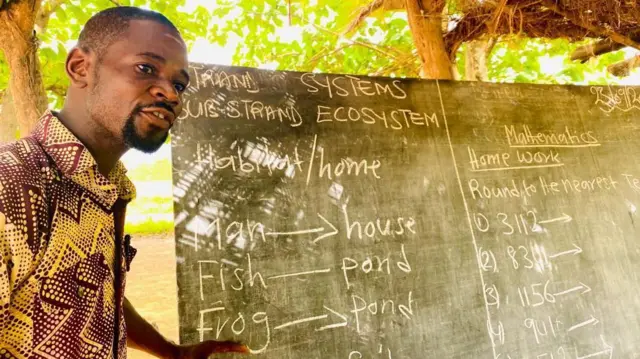 STRAND SYSTEMS
SUB-STRAND ECOSYSTEM
Habitat/home
Man → house
Fish — pond
Frog → Pond
Mathematics
Home work
Round to the nearest
1) 3112 →
(2)
(3) 1156 →
(4